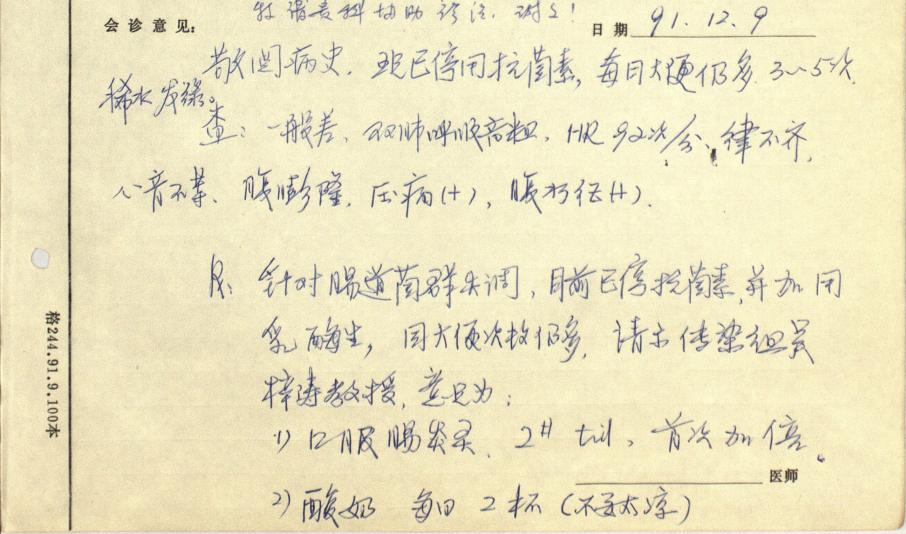 特请贵科协助诊治，谢谢！
会诊意见：
日期 91.12.9
敬阅病史，现已停用抗菌素，每日大便仍多，3～5次，
稀水发绿。
查：一般差，双肺呼吸音粗，HR 92次/分，律不齐，
心音不着，腹膨隆，压痛(+)，腹水征(+)．
R: 针对肠道菌群失调，目前已停抗菌素，并加用
乳酶生，因大便次数仍多，请示传染组吴
梓涛教授，意见为：
1) 口服肠炎灵，2# tid，首次加倍。
医师
2) 酸奶 每日2杯（不要太凉）
格244.91.9.100本